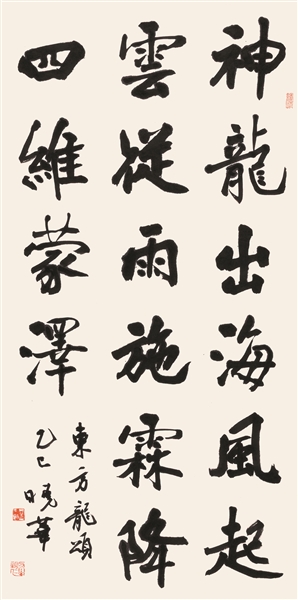 神龍出海風起
雲從雨施霖降
四維蒙澤
東方龍頌
乙巳曉華